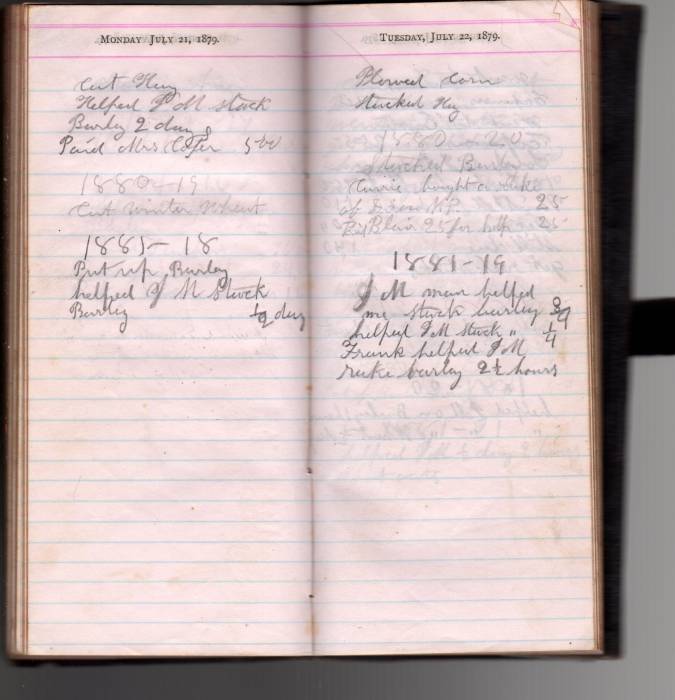 Monday July 21, 1879.
Cut Hay
Helped J M stack
Barley 2 days
Paid Mrs 500
1880-19
Cut winter wheat
1881-18
Put up Barley
helped J M Stack
Barley 1/2 day
Tuesday, July 22, 1879.
Plowed Corn
Stacked Hay
1880-20
Stacked Barley
bought a rake
of N.P. 25
Pd Blair 25 for help 25
1881-19
J M man helped
me stack barley 3/4
helped J M stack " 1/4
Frank helped J M
rake barley 2 1/2 hours